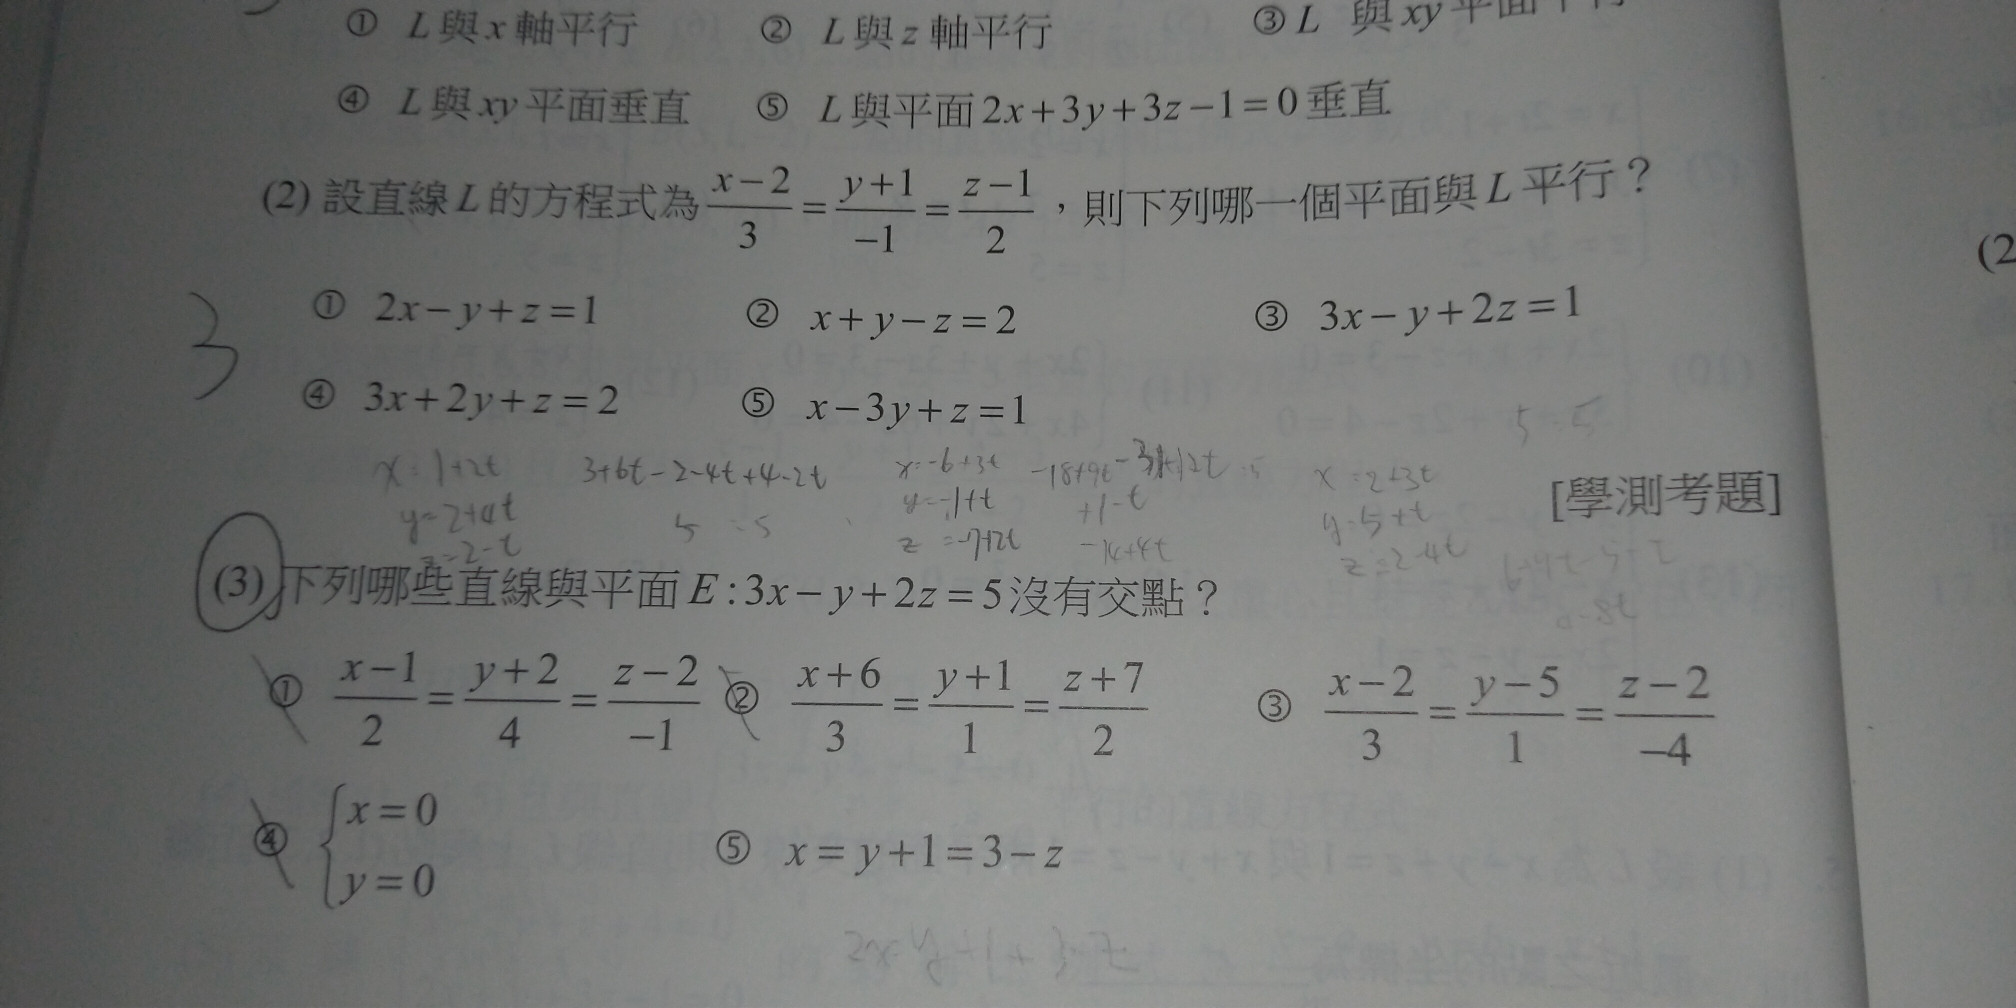 ① L與x軸平行 ② L與z軸平行 ③ L 與xy平面平行
④ L與xy平面垂直 ⑤ L與平面2x+3y+3z-1=0垂直
(2) 設直線L的方程式為 (x-2)/3 = (y+1)/(-1) = (z-1)/2，則下列哪一個平面與L平行？
① 2x-y+z=1 ② x+y-z=2 ③ 3x-y+2z=1
3
④ 3x+2y+z=2 ⑤ x-3y+z=1
5=5
x=1+2t 3+6t-2-4t+4-2t x=-6+3t x=2+3t
[學測考題]
y=2+4t 5=5 y=-1+t +1-t y=5+t
z=2-t z=-7+2t -14+4t z=2-4t
(3) 下列哪些直線與平面E:3x-y+2z=5沒有交點？
① (x-1)/2 = (y+2)/4 = (z-2)/(-1) ② (x+6)/3 = (y+1)/1 = (z+7)/2 ③ (x-2)/3 = (y-5)/1 = (z-2)/(-4)
④ { x=0
y=0 ⑤ x=y+1=3-z
(2